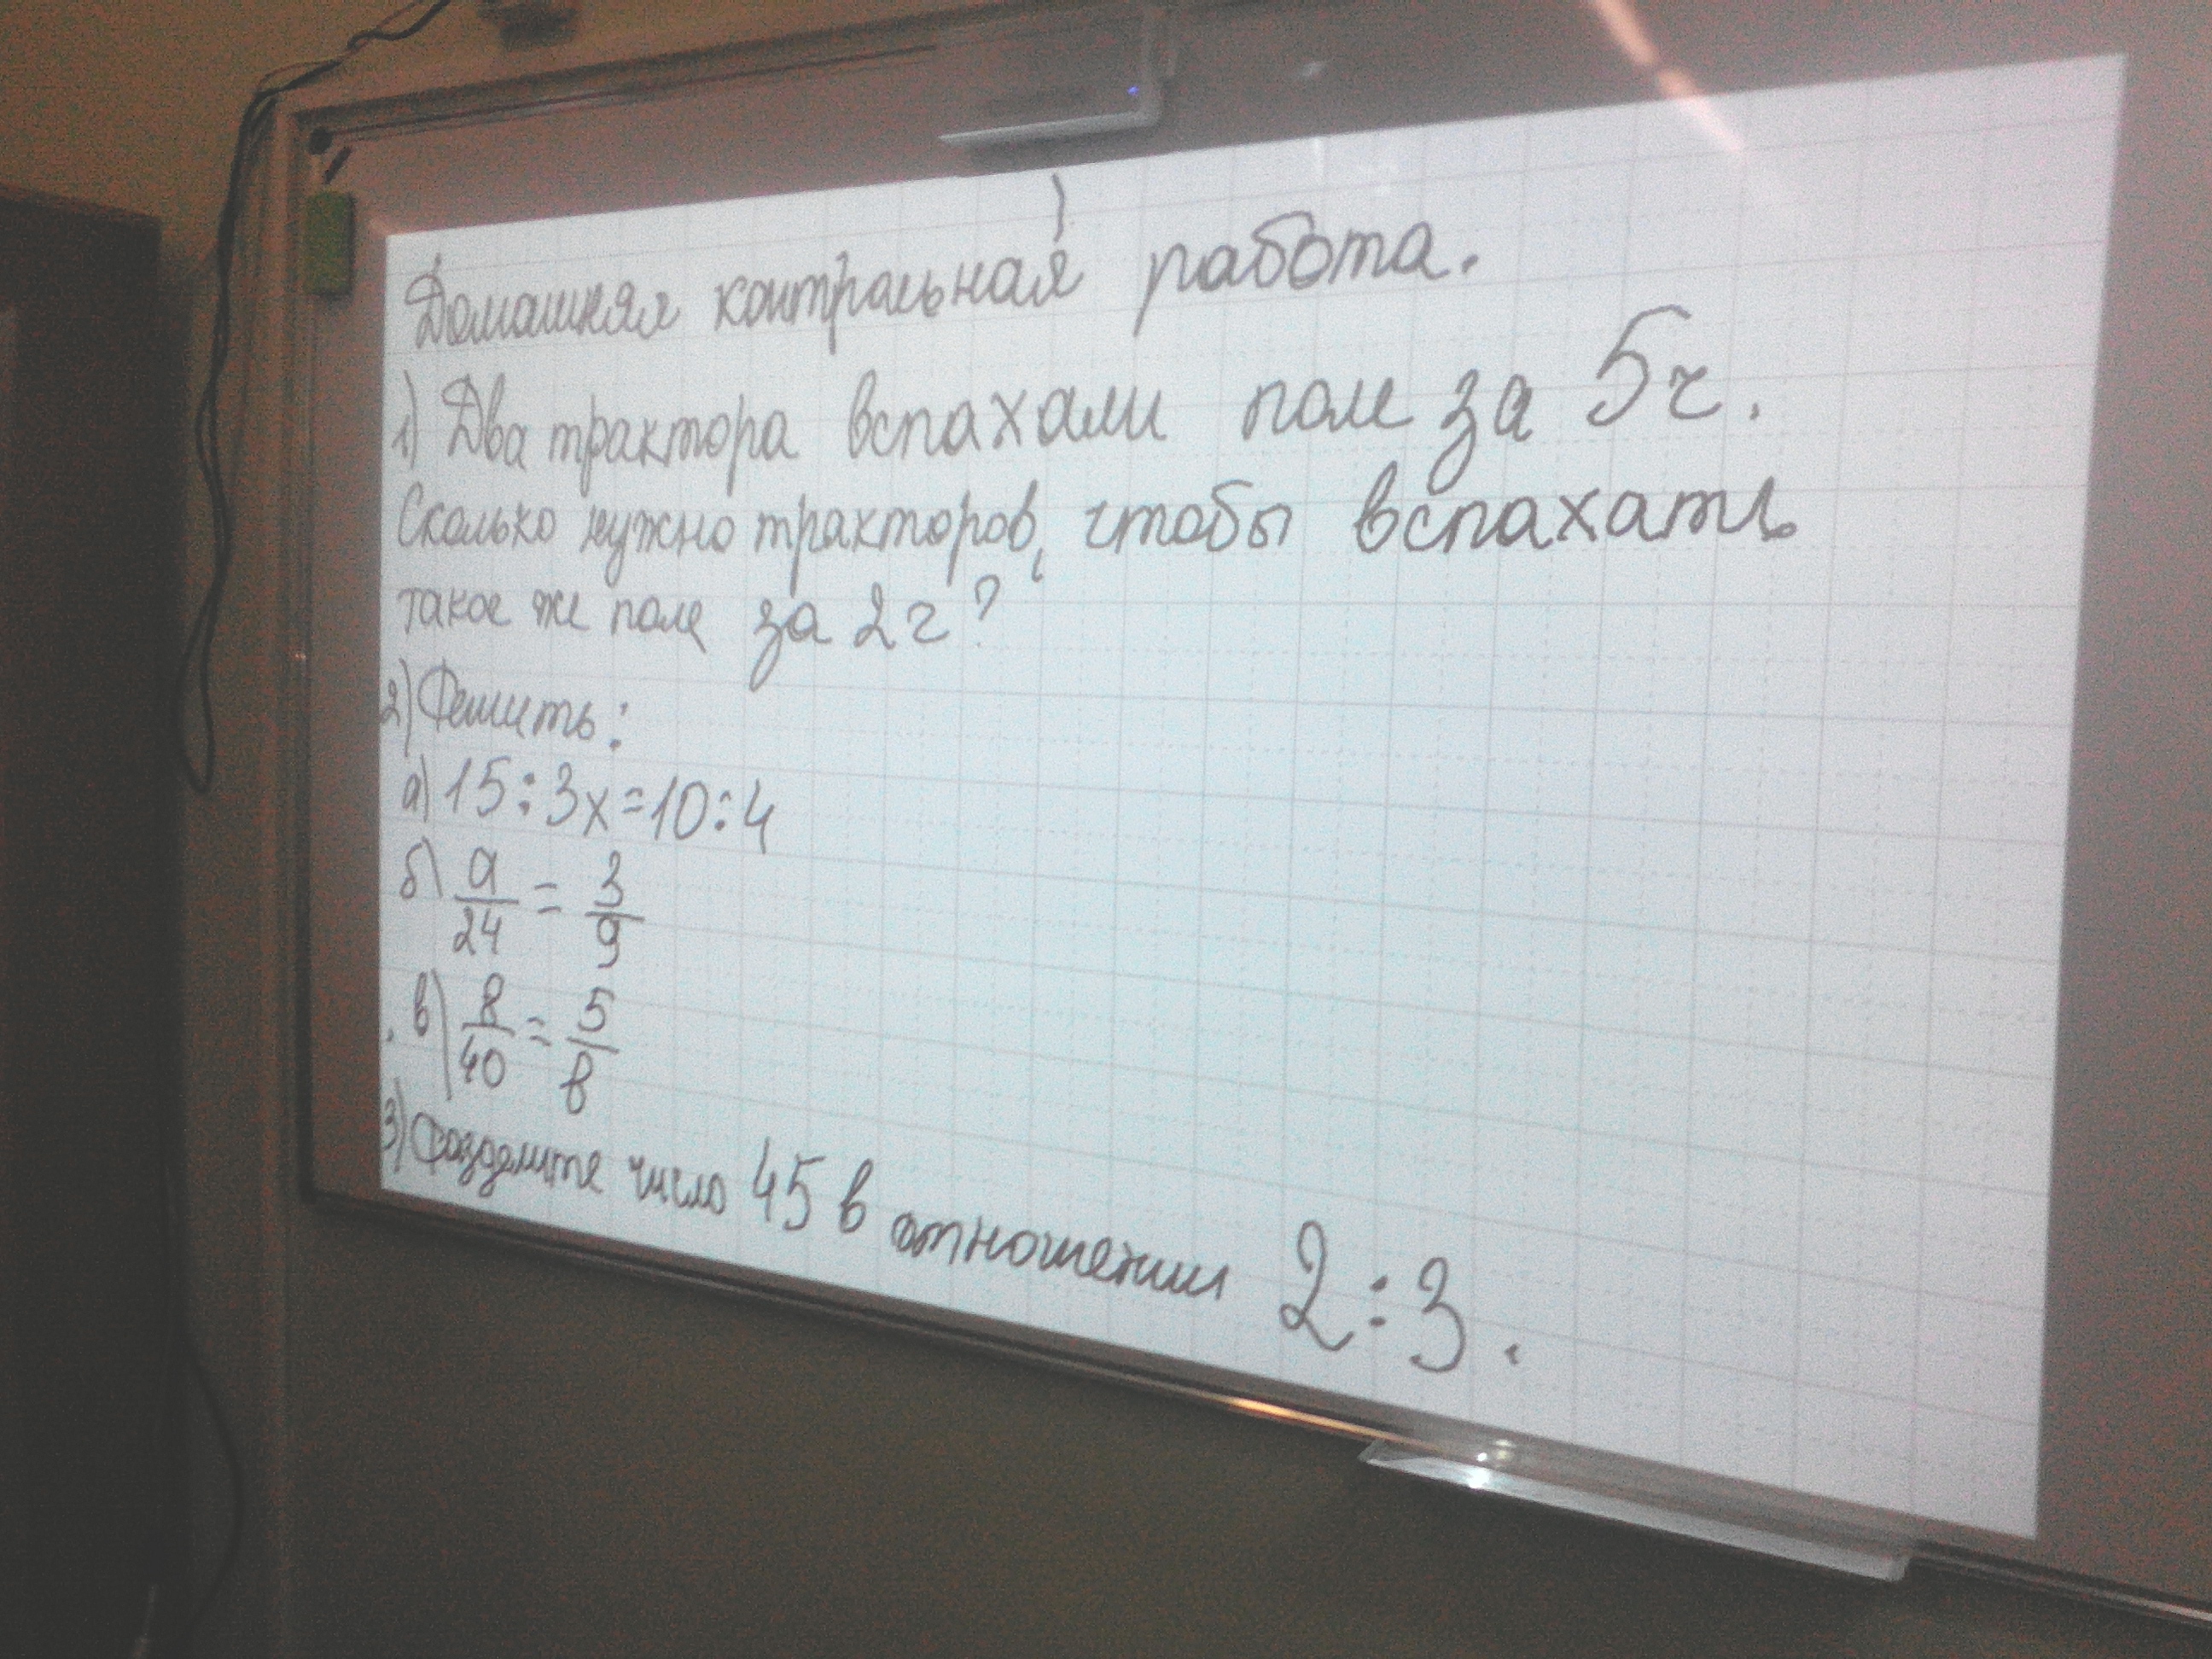 Домашняя контрольная работа.
1) Два трактора вспахали поле за 5ч.
Сколько нужно тракторов, чтобы вспахать
такое же поле за 2ч?
2) Решить:
а) 15:3x=10:4
б) a/24 = 3/9
в) 8/40 = 5/в
3) Разделите число 45 в отношении 2:3.